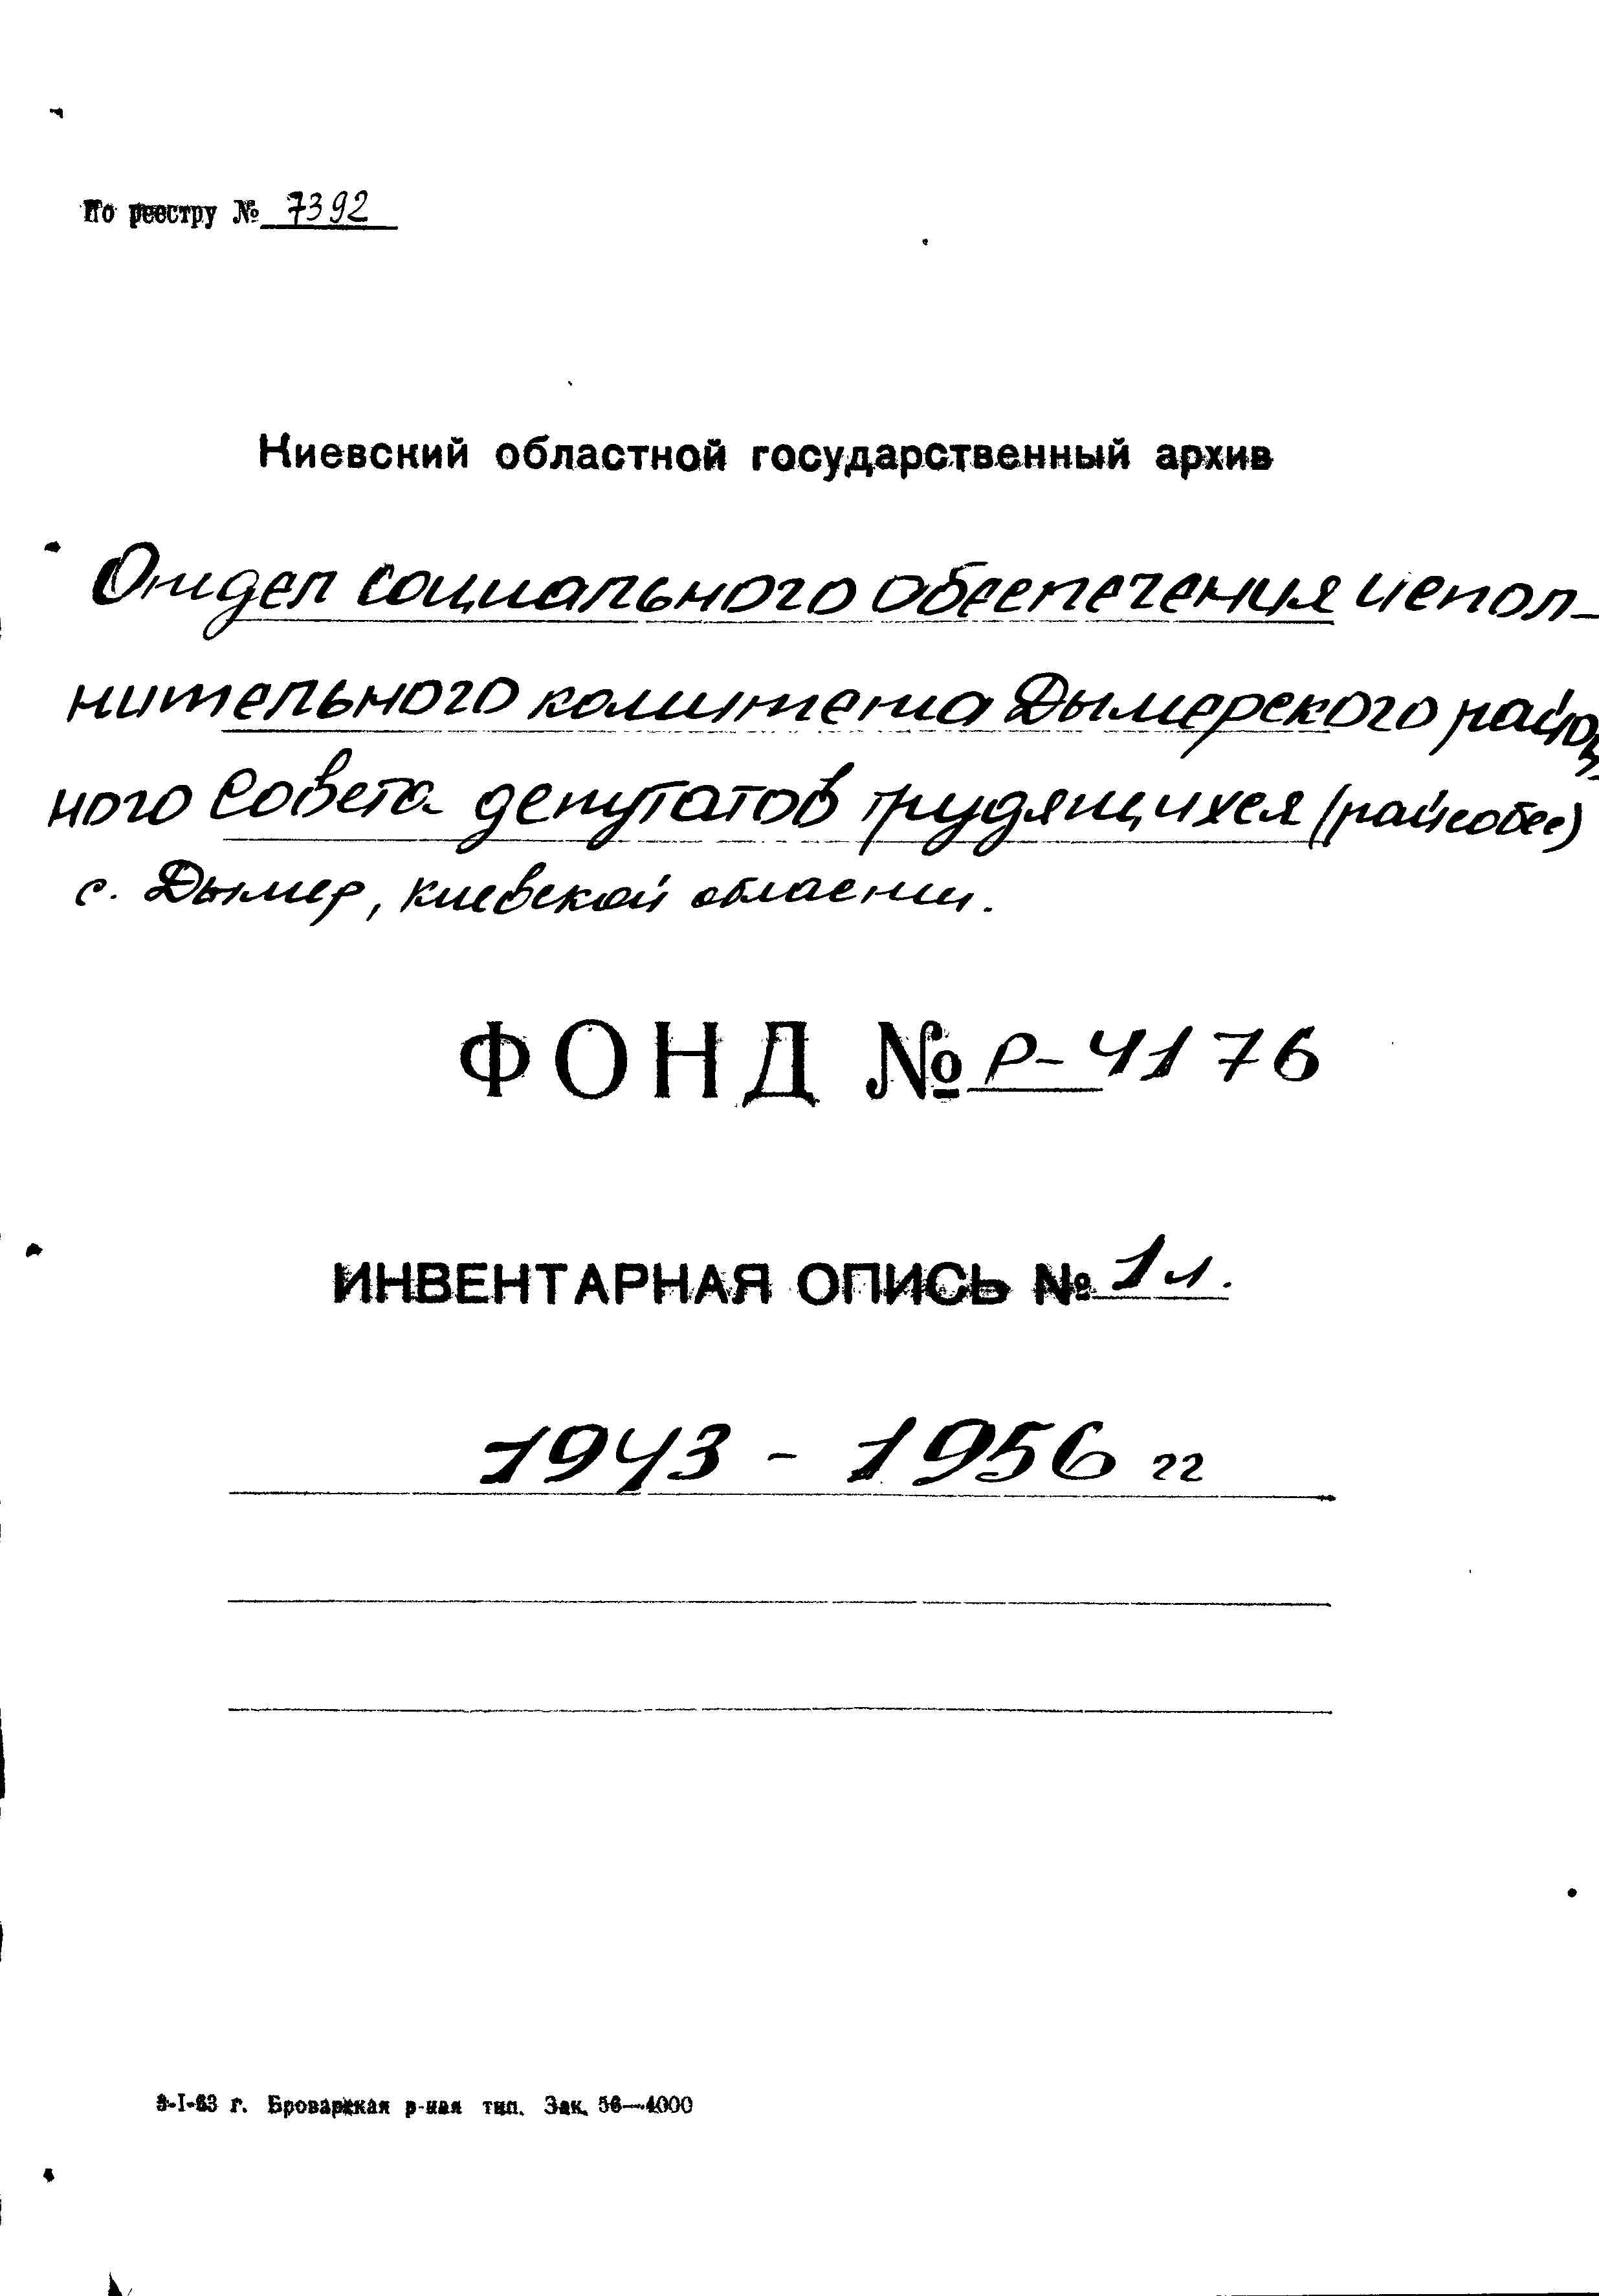 По реестру № 7392
Киевский областной государственный архив
Отдел социального обеспечения испол-
нительного комитета Дымерского район
ного Совета депутатов трудящихся (райсобес)
с. Дымер, Киевской области.
ФОНД № Р-4176
ИНВЕНТАРНАЯ ОПИСЬ № 1л.
1943 - 1956 гг
3-I-63 г. Броварская р-ная тип. Зак. 56—4000